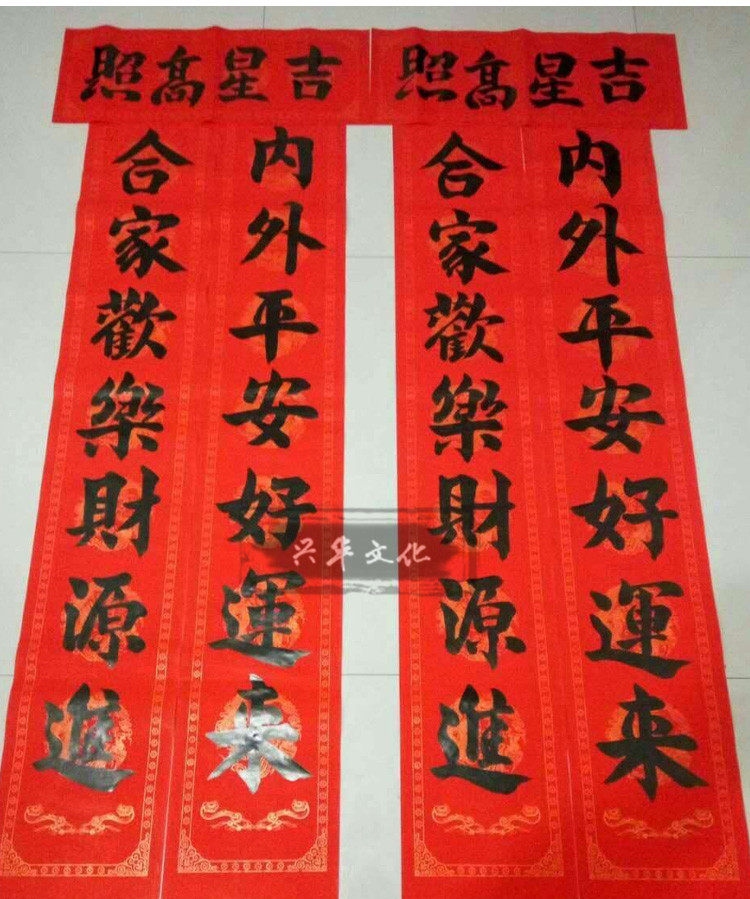 吉星高照
内外平安好運来
合家歡樂財源進
吉星高照
内外平安好運来
合家歡樂財源進
兴华文化